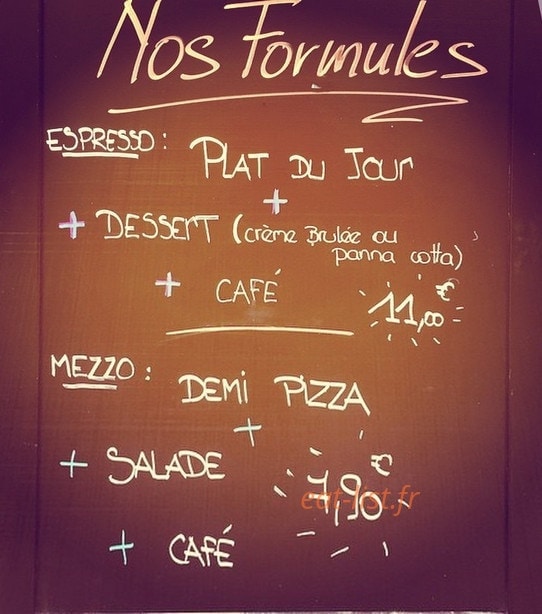 Nos Formules
ESPRESSO : PLAT DU JOUR
+
+ DESSERT (crème Brulée ou
panna cotta)
+ CAFÉ
11,00 €
MEZZO : DEMI PIZZA
+
+ SALADE
7,90 €
eat-list.fr
+ CAFÉ